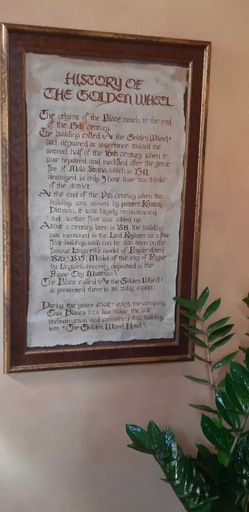 HISTORY OF
THE GOLDEN WHEEL
The origins of the Place reach to the end
of the 15th century.
The building called »At the Golden Wheel«
had acquired at importance toward the
second half of the 16th century when it
was repaired and modified after the great
fire of Malá Strana, which in 1541
destroyed in only 3 hour time two thirds
of the district.
At the end of the 17th century when the
building was owned by painter
it was largely reconstructed
and another floor was added up.
About a century later in 1814 the building
was mentioned in the Land Register as a four
floor building, wich can be also seen on the
famous Langweil's model of Prague dated
1826-1835. (Model of the city of Prague
by Langweil recently deposited in the
Prague City Museum.)
The Place called »At the Golden Wheel«
is preserved there in its today aspect.
During the years 2001-2003 the company
Casa Bianca s.r.o. has made the last
reconstruction and converted this building
into »The Golden Wheel Hotel«.